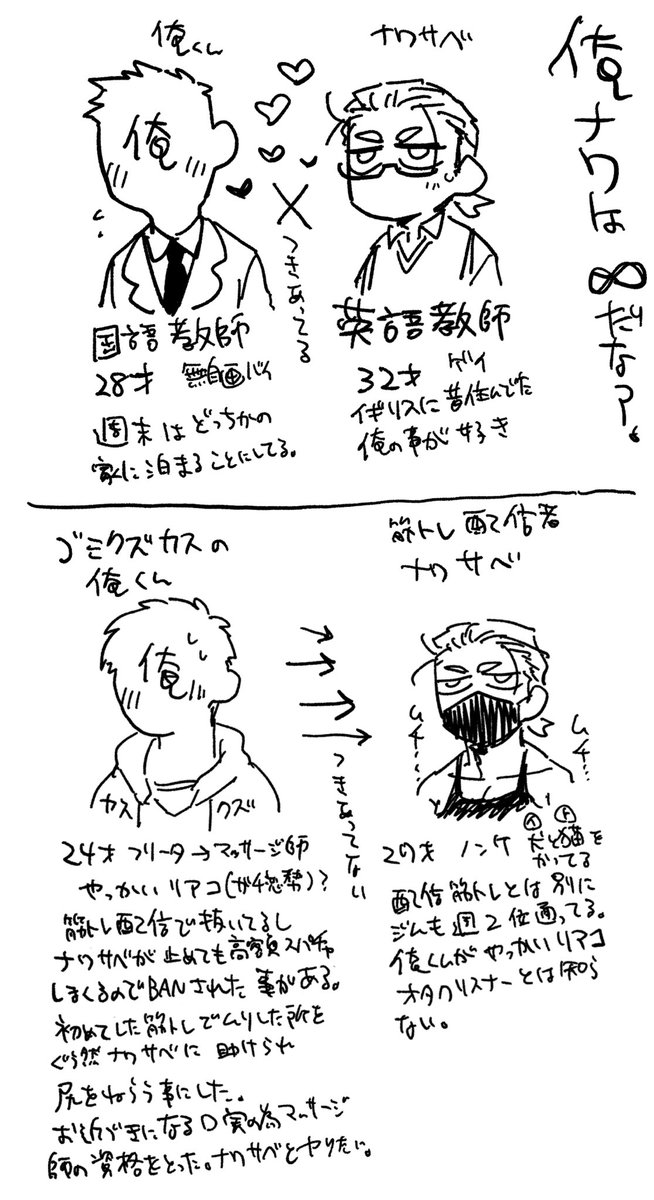 俺ナワは∞だな?。
俺くん
ナワサベ
俺
×
つきあってる
国語教師
28才 無自覚バイ
週末はどっちかの
家に泊まることにしてる。
英語教師
32才 ゲイ
イギリスに昔住んでた
俺の事が好き
ゴミクズカスの
俺くん
筋トレ配信者
ナワサベ
俺
カス クズ
つきあってない
ムチ…
ムチ…
24才 フリーター→マッサージ師
やっかいリアコ(ガチ恋勢)?
筋トレ配信で抜いてるし
ナワサベが止めても高額スパチャ
しまくるのでBANされた事がある。
初めてした筋トレでムリした所を
ぐう然ナワサベに助けられ
尻をねらう事にした。
お近づきになる口実の為マッサージ
師の資格をとった。ナワサベとヤりたい。
27才 ノンケ 犬と猫を
かってる
配信筋トレとは別に
ジムも週2位通ってる。
俺くんがやっかいリアコ
オタクリスナーとは知ら
ない。